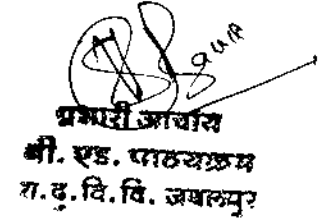 प्रभारी आचार्य
बी. एड. पाठयक्रम
रा. दु. वि. वि. जबलपुर